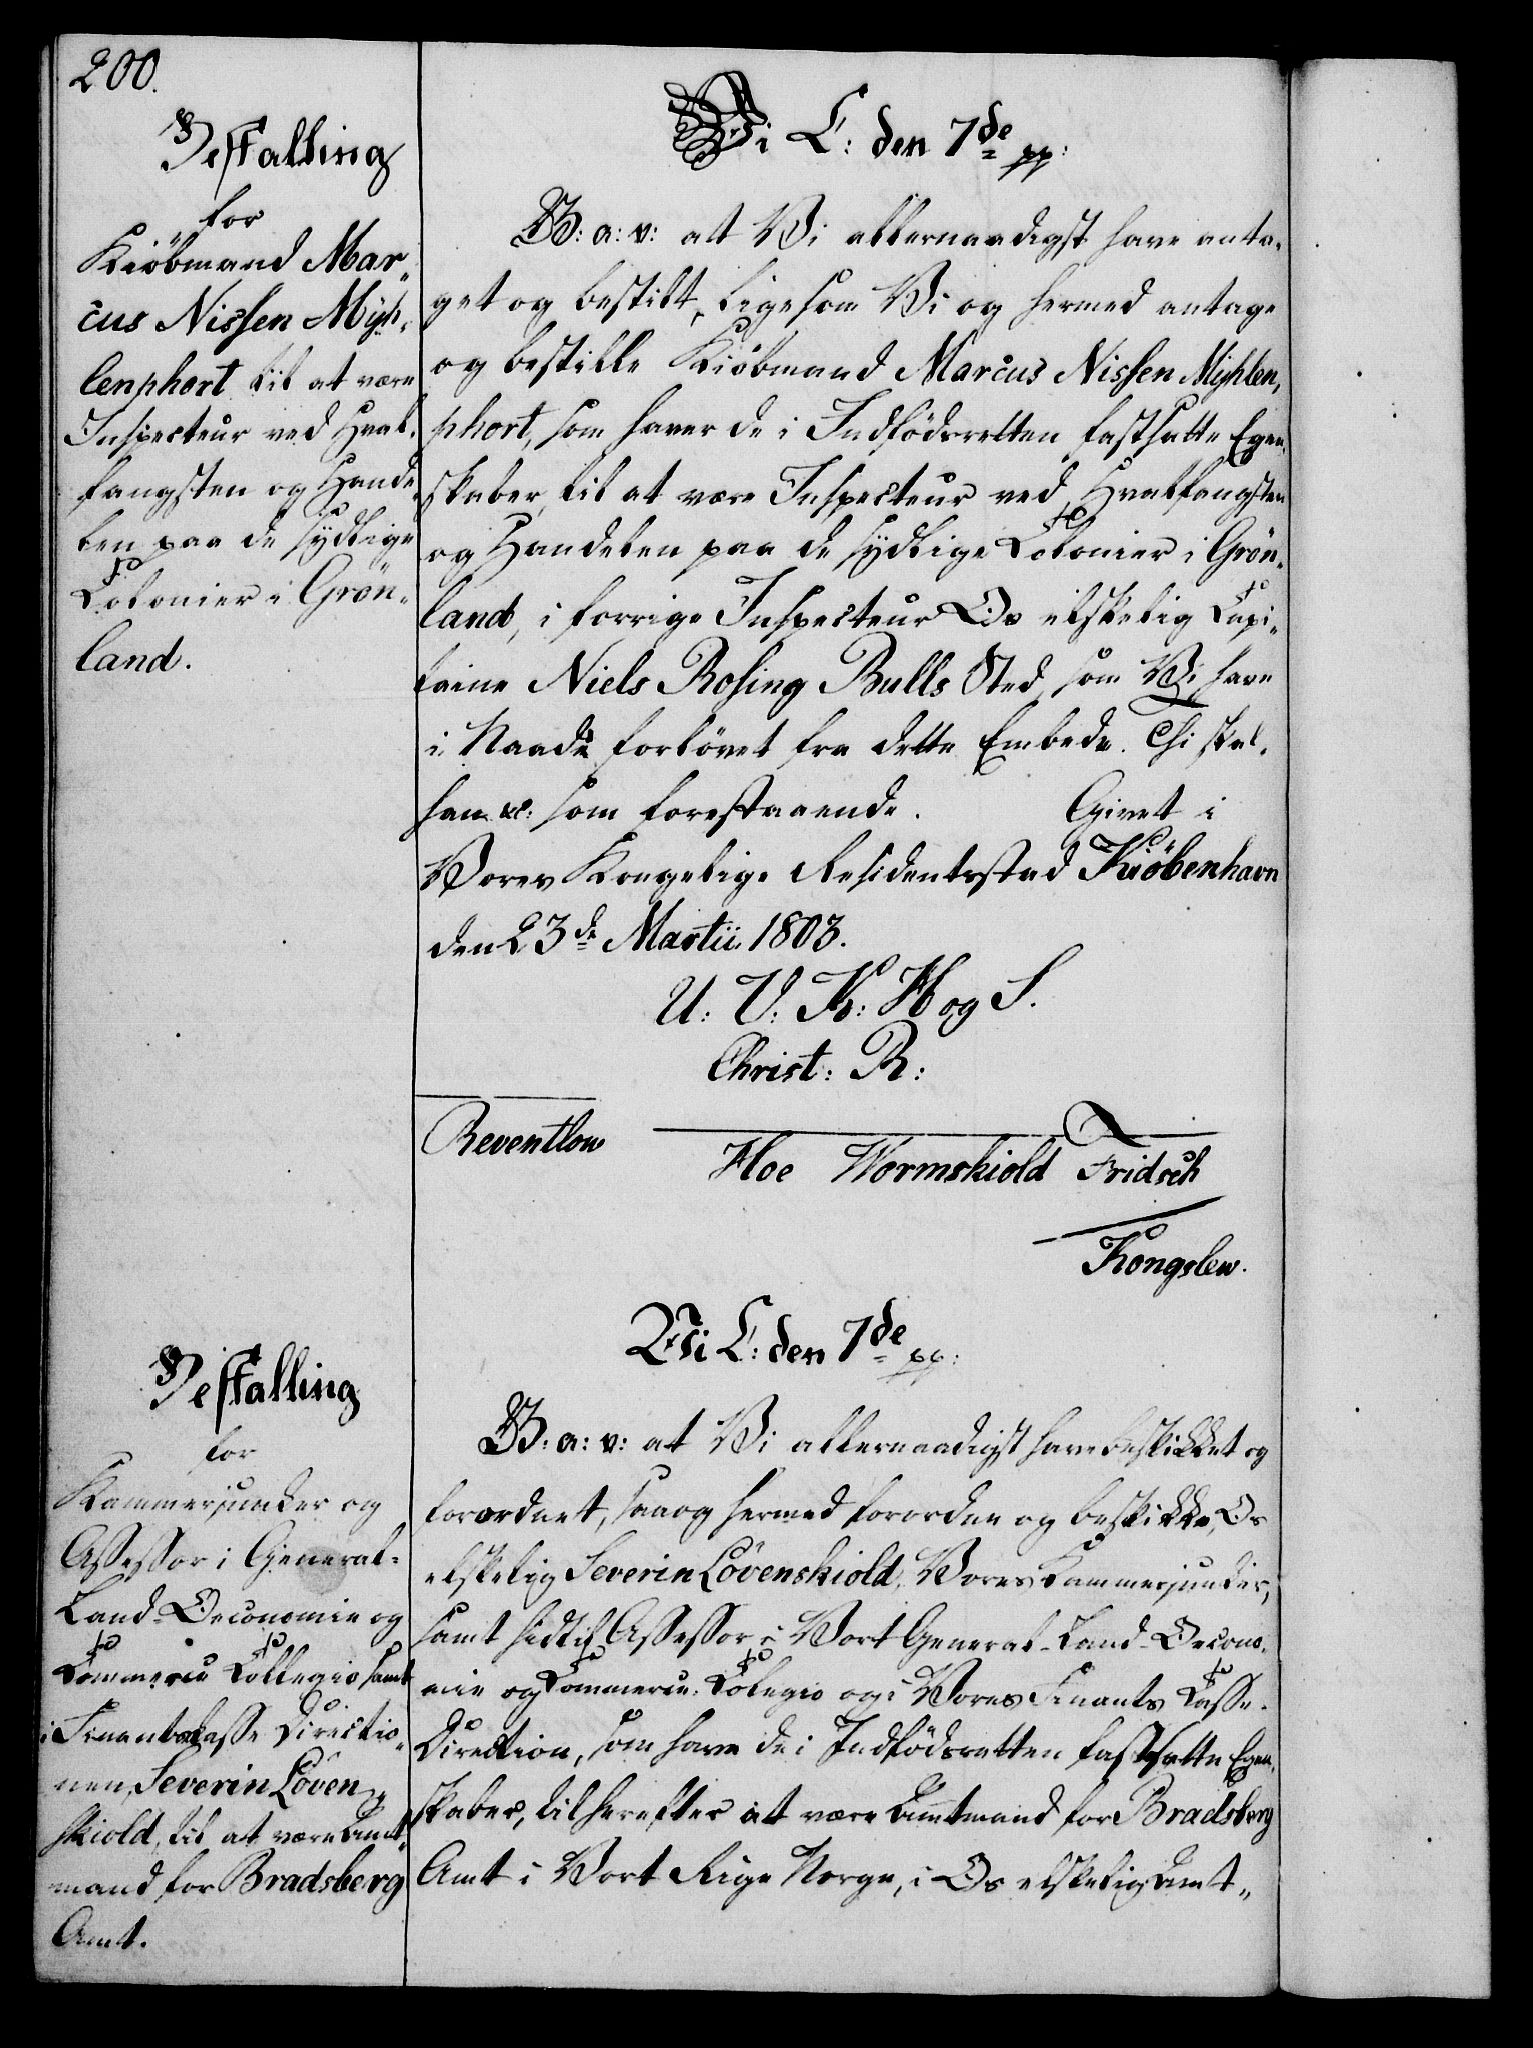 200.
Bestalling
for
Kiöbmand Mar-
cus Nissen Myh-
lenphort til at være
Inspecteur ved Hval-
fangsten og Hande-
len paa de sydlige
Colonier i Grön-
land.
Vi C: den 7de pp:
G: a: v: at Vi allernaadigst have anta-
get og bestilt, ligesom Vi og hermed antage
og bestille Kiöbmand Marcus Nissen Myhlen-
phort, som haver de i Indfödsretten fastsatte Egen-
skaber, til at være Inspecteur ved Hvalfangsten
og Handelen paa de sydlige Colonier i Grön-
land, i forrige Inspecteur Os elskelig Capi-
taine Niels Rosing Bulls Sted, som Vi have
i Naade forlövet fra dette Embede. Thi skal
han &c: som forestaaende. Givet i
Vores Kongelige Residentsstad Kiöbenhavn
den 23de Martii 1803.
U: V: K: H og S.
Christ: R:
Reventlow
Hoe Wormskiold Fridsch
Kongslew.
Bestalling
for
Kammerjunker og
Assessor i General-
Land-Oeconomie og
Commerce Collegio samt
i Finantskasse Directio-
nen, Severin Löven-
skiold, til at være Amt-
mand for Bradsberg
Amt.
Vi C: den 7de pp:
G: a: v: at Vi allernaadigst have beskikket og
forordnet, saa og hermed forordne og beskikke, Os
elskelig Severin Lövenskiold, Vores Kammerjunker,
samt hidtil Assessor i Vort General-Land-Oecono-
mie og Commerce-Collegio og i Vores Finants Casse-
Direction, som have de i Indfödsretten fastsatte Egen-
skaber, til herefter at være Amtmand for Bradsberg
Amt i Vort Rige Norge, i Os elskelig Amt-